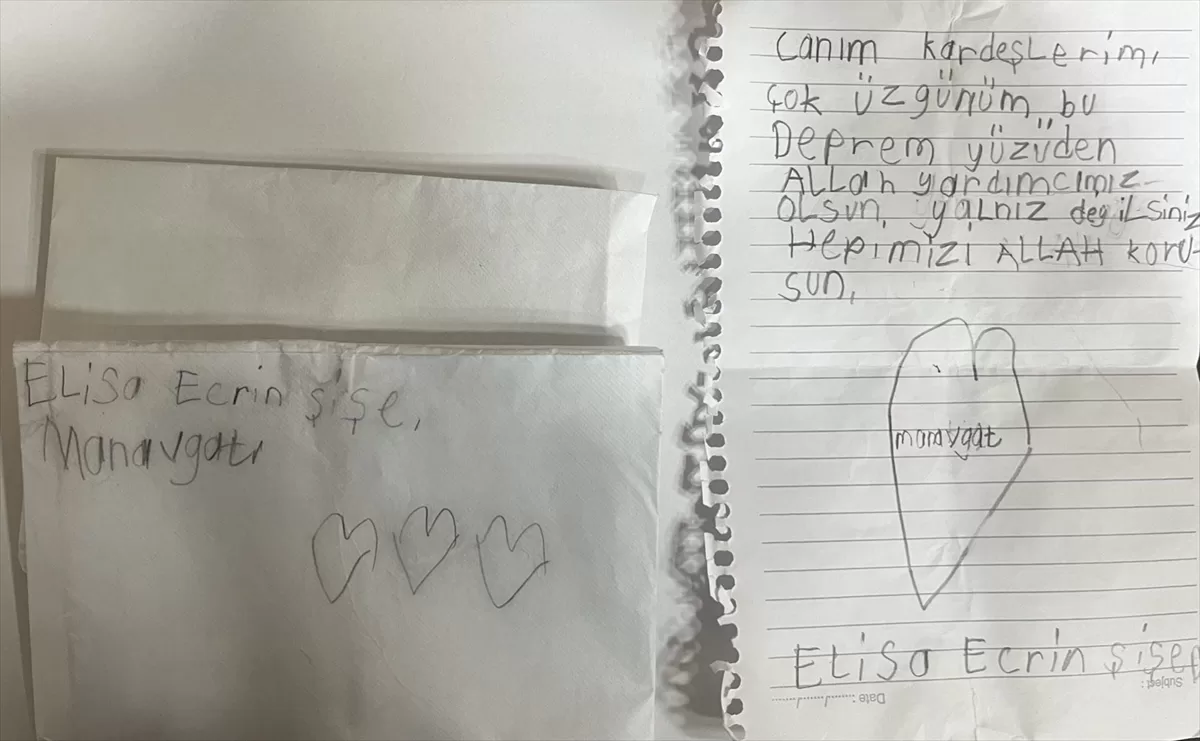 ELiSa Ecrin şişe,
Manavgat,
canım kardeşLerim,
çok üzgünüm bu
Deprem yüzüden
ALLah yardımcımız
OLSun, yaLnız değiLsiniz
Hepimizi ALLAH koru-
sun,
manavgat
ELiSa Ecrin şişe
Subject:
Date: